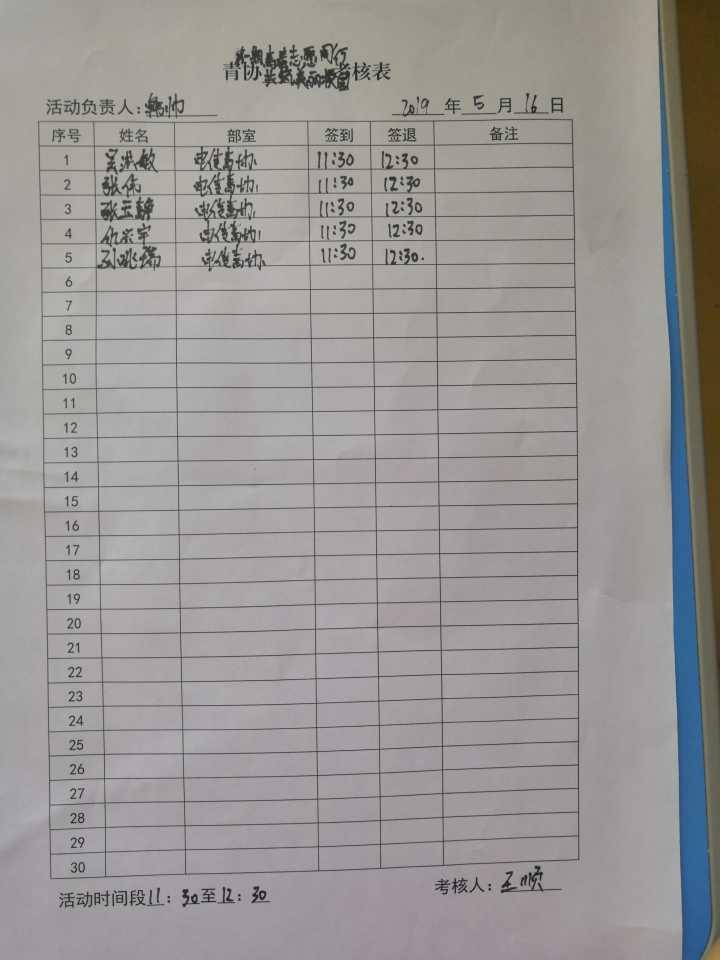 青协 志愿同行 考核表
共建美丽校园
活动负责人：韩帅 2019 年 5 月 16 日
序号 姓名 部室 签到 签退 备注
1 敏 电信青协 11:30 12:30
2 张伟 电信青协 11:30 12:30
3 张玉 电信青协 11:30 12:30
4 仇宗宇 电信青协 11:30 12:30
5 孙兆瑞 电信青协 11:30 12:30.
6
7
8
9
10
11
12
13
14
15
16
17
18
19
20
21
22
23
24
25
26
27
28
29
30
活动时间段11：30至12：30 考核人：王顺